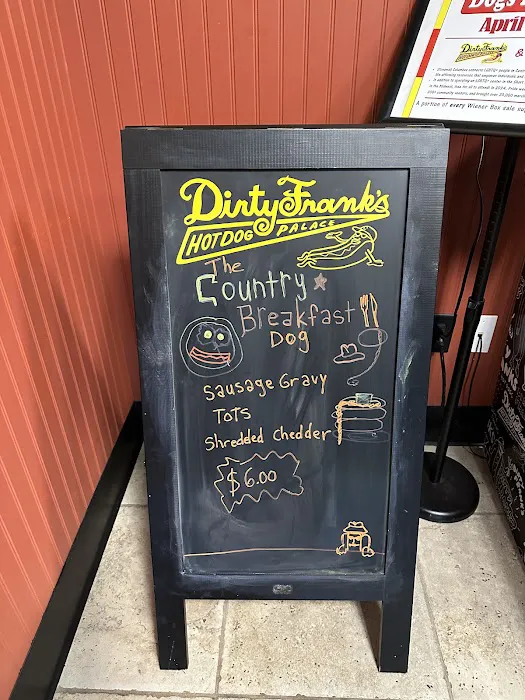 Dogs
April
DirtyFrank's
&
A portion of every Wiener Box sale
Dirty Frank's
HOT DOG PALACE
The
Country
Breakfast
Dog
Sausage Gravy
Tots
Shredded Chedder
$6.00